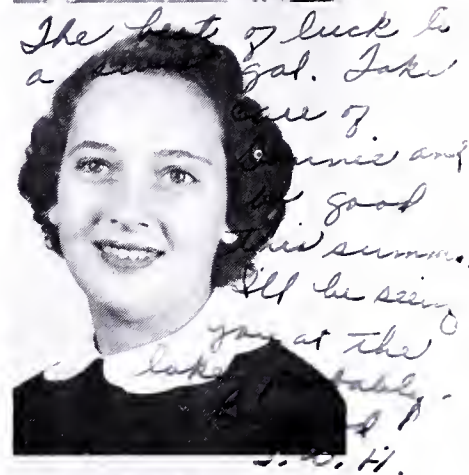 The best of luck to
a sweet gal. Take
care of
and
be good
this summ.
I'll be seeing
you at the
lake